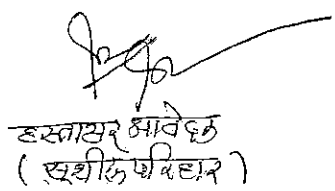 हस्ताक्षर आवेदक
( सुशील परिहार )